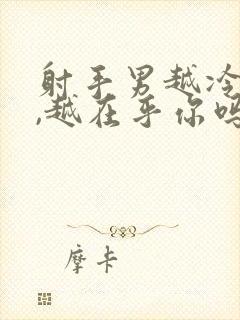 射手男越冷
,越在乎你吗
摩卡